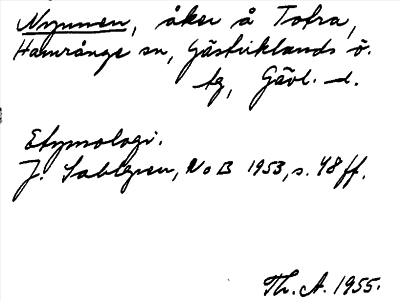 Nymnen, åker å Tofra,
Hamrånge sn, Gästriklands ö.
tg, Gävl. -d.
Etymologi.
J. Sahlgren, NoB 1953, s. 48 ff.
Th. A. 1955.